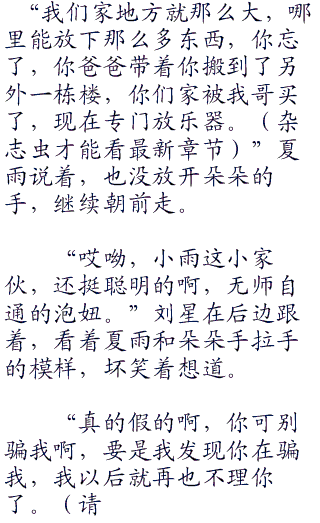 “我们家地方就那么大，哪
里能放下那么多东西，你忘
了，你爸爸带着你搬到了另
外一栋楼，你们家被我哥买
了，现在专门放乐器。（杂
志虫才能看最新章节）”夏
雨说着，也没放开朵朵的
手，继续朝前走。
“哎呦，小雨这小家
伙，还挺聪明的啊，无师自
通的泡妞。”刘星在后边跟
着，看着夏雨和朵朵手拉手
的模样，坏笑着想道。
“真的假的啊，你可别
骗我啊，要是我发现你在骗
我，我以后就再也不理你
了。（请